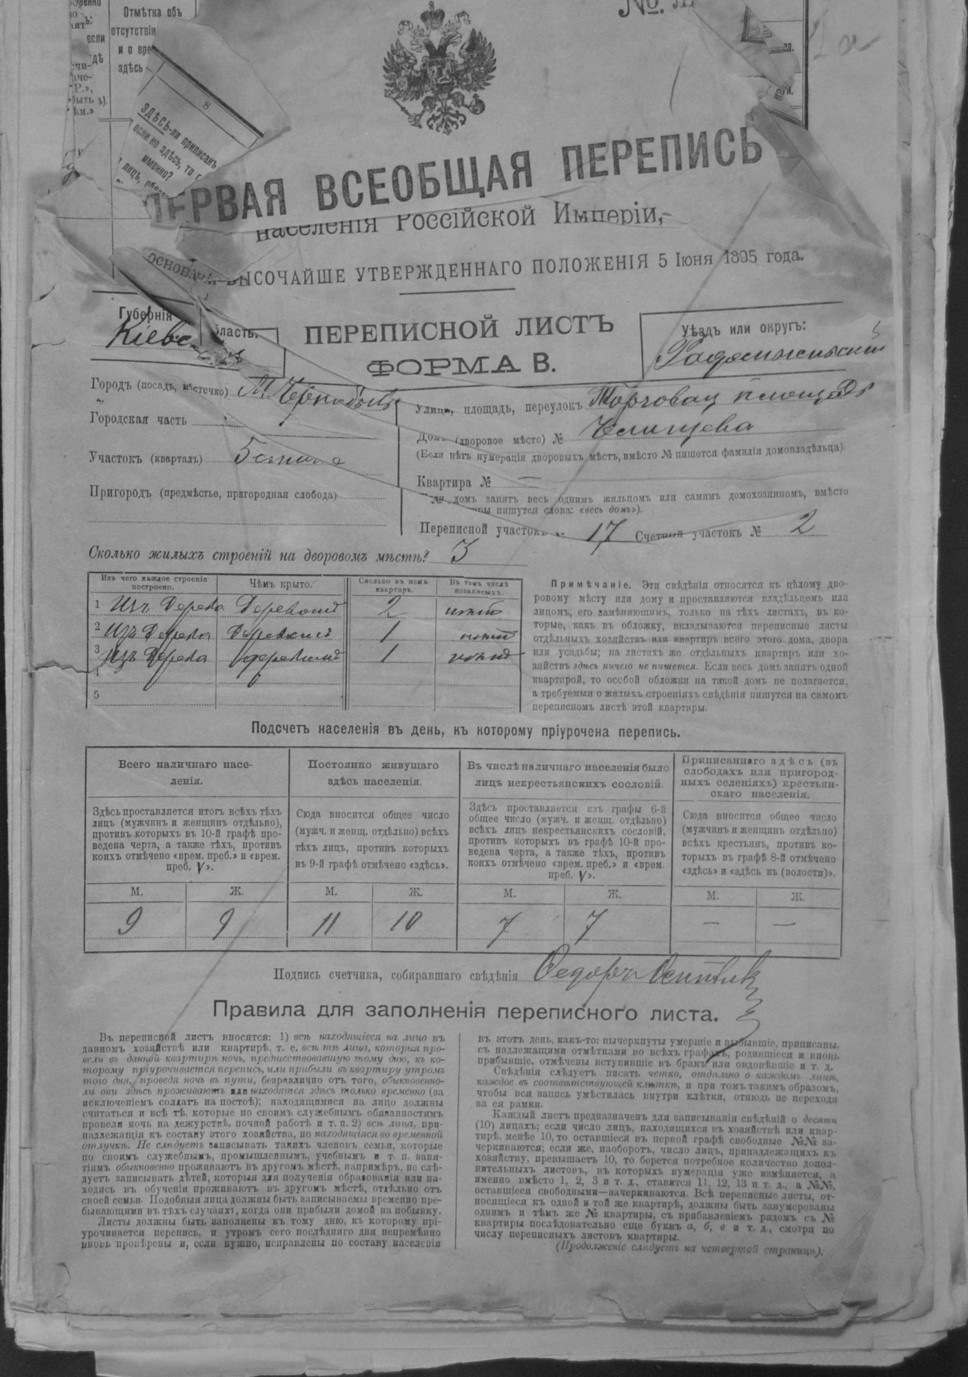 Отмѣтка объ
отсутствіи
и о вре
здѣсь
№
8
ЗДѢСЬ-ли приписанъ
если не здѣсь, то г
именно?
ПЕРВАЯ ВСЕОБЩАЯ ПЕРЕПИСЬ
населенія Россійской Имперіи,
основа ВЫСОЧАЙШЕ УТВЕРЖДЕННАГО ПОЛОЖЕНІЯ 5 Іюня 1895 года.
Губернія область:
Кіевс
ПЕРЕПИСНОЙ ЛИСТЪ
ФОРМА В.
Уѣздъ или округъ:
Радомысльскій
Городъ (посадъ, мѣстечко) М. Чернобыль
Городская часть
Участокъ (кварталъ) 5 стана
Пригородъ (предмѣстье, пригородная слобода)
Улица, площадь, переулокъ Торговая площадь
Домъ (дворовое мѣсто) №
(Если нѣтъ нумераціи дворовыхъ мѣстъ, вмѣсто № пишется фамилія домовладѣльца)
Квартира № —
ли домъ занятъ весь однимъ жильцомъ или самимъ домохозяиномъ, вмѣсто
ры пишутся слова: «весь домъ»).
Переписной участокъ № 17 Счетный участокъ № 2
Сколько жилыхъ строеній на дворовомъ мѣстѣ? 3
Изъ чего каждое строеніе построено. Чѣмъ крыто. Сколько въ немъ квартиръ. Въ томъ числѣ незанятыхъ.
1 Изъ дерева Деревомъ 2
2 Изъ дерева Деревомъ 1
3 Изъ дерева деревомъ 1
4
5
Примѣчаніе. Эти свѣдѣнія относятся къ цѣлому дво-
ровому мѣсту или дому и проставляются владѣльцемъ или
лицомъ, его замѣняющимъ, только на тѣхъ листахъ, въ ко-
торые, какъ въ обложку, вкладываются переписные листы
отдѣльныхъ хозяйствъ или квартиръ всего этого дома, двора
или усадьбы; на листахъ же отдѣльныхъ квартиръ или хо-
зяйствъ здѣсь ничего не пишется. Если весь домъ занятъ одной
квартирой, то особой обложки на такой домъ не полагается,
а требуемыя о жилыхъ строеніяхъ свѣдѣнія пишутся на самомъ
переписномъ листѣ этой квартиры.
Подсчетъ населенія въ день, къ которому пріурочена перепись.
Всего наличнаго насе-
ленія.
Здѣсь проставляется итогъ всѣхъ тѣхъ
лицъ (мужчинъ и женщинъ отдѣльно),
противъ которыхъ въ 10-й графѣ про-
ведена черта, а также тѣхъ, противъ
коихъ отмѣчено «врем. преб.» и «врем.
преб. V».
М. Ж.
9 9
Постоянно живущаго
здѣсь населенія.
Сюда вносится общее число
(мужч. и женщ. отдѣльно) всѣхъ
тѣхъ лицъ, противъ которыхъ
въ 9-й графѣ отмѣчено «здѣсь».
М. Ж.
11 10
Въ числѣ наличнаго населенія было
лицъ некрестьянскихъ сословій.
Здѣсь проставляется изъ графы 6-й
общее число (мужч. и женщ. отдѣльно)
всѣхъ лицъ некрестьянскихъ сословій,
противъ которыхъ въ графѣ 10-й про-
ведена черта, а также тѣхъ, противъ
коихъ отмѣчено «врем. преб.» и «врем.
преб. V».
М. Ж.
7 7
Приписаннаго здѣсь (въ
слободахъ или пригород-
ныхъ селеніяхъ) крестьян-
скаго населенія.
Сюда вносится общее число
(мужчинъ и женщинъ отдѣльно)
всѣхъ крестьянъ, противъ ко-
торыхъ въ графѣ 8-й отмѣчено
«здѣсь» и «здѣсь къ (волости)».
М. Ж.
— —
Подпись счетчика, собиравшаго свѣдѣнія Федоръ
Правила для заполненія переписного листа.
Въ переписной листъ вносятся: 1) всѣ находящіеся на лицо въ
данномъ хозяйствѣ или квартирѣ, т. е. всѣ тѣ лица, которыя про-
вели въ данной квартирѣ ночь, предшествовавшую тому дню, къ ко-
торому пріурочивается перепись, или прибыли въ квартиру утромъ
того дня, проведя ночь въ пути, безразлично отъ того, обыкновенно-
ли они здѣсь проживаютъ или находятся здѣсь только временно (за
исключеніемъ солдатъ на постоѣ); находящимися на лицо должны
считаться и всѣ тѣ, которые по своимъ служебнымъ обязанностямъ
провели ночь на дежурствѣ, ночной работѣ и т. п. 2) всѣ лица, при-
надлежащія къ составу этого хозяйства, но находящіяся во временной
отлучкѣ. Не слѣдуетъ записывать такихъ членовъ семьи, которые
по своимъ служебнымъ, промышленнымъ, учебнымъ и т. п. заня-
тіямъ обыкновенно проживаютъ въ другомъ мѣстѣ, напримѣръ, не слѣ-
дуетъ записывать дѣтей, которыя для полученія образованія или на-
ходясь въ обученіи проживаютъ въ другомъ мѣстѣ, отдѣльно отъ
своей семьи. Подобныя лица должны быть записываемы временно пре-
бывающими въ тѣхъ случаяхъ, когда они прибыли домой на побывку.
Листы должны быть заполнены къ тому дню, къ которому прі-
урочивается перепись, и утромъ сего послѣдняго дня непремѣнно
вновь провѣрены и, если нужно, исправлены по составу населенія
въ этотъ день, какъ-то: вычеркнуты умершіе и выбывшіе, приписаны,
съ надлежащими отмѣтками во всѣхъ графахъ, родившіеся и вновь
прибывшіе, отмѣчены вступившіе въ бракъ или овдовѣвшіе и т. д.
Свѣдѣнія слѣдуетъ писать четко, отдѣльно о каждомъ лицѣ,
каждое въ соотвѣтствующей клѣткѣ, и при томъ такимъ образомъ,
чтобы вся запись умѣстилась внутри клѣтки, отнюдь не переходя
за ея рамки.
Каждый листъ предназначенъ для записыванія свѣдѣній о десяти
(10) лицахъ; если число лицъ, находящихся въ хозяйствѣ или квар-
тирѣ, менѣе 10, то оставшіеся въ первой графѣ свободные №№ за-
черкиваются; если же, наоборотъ, число лицъ, принадлежащихъ къ
хозяйству, превышаетъ 10, то берется потребное количество допол-
нительныхъ листовъ, въ которыхъ нумерація уже измѣняется, а
именно вмѣсто 1, 2, 3 и т. д., ставится 11, 12, 13 и т. д., а №№,
оставшіеся свободными—зачеркиваются. Всѣ переписные листы, от-
носящіеся къ одной и той же квартирѣ, должны быть занумерованы
однимъ и тѣмъ же № квартиры, съ прибавленіемъ рядомъ съ №
квартиры послѣдовательно еще буквъ а, б, в и т. д., смотря по
числу переписныхъ листовъ квартиры.
(Продолженіе слѣдуетъ на четвертой страницѣ).